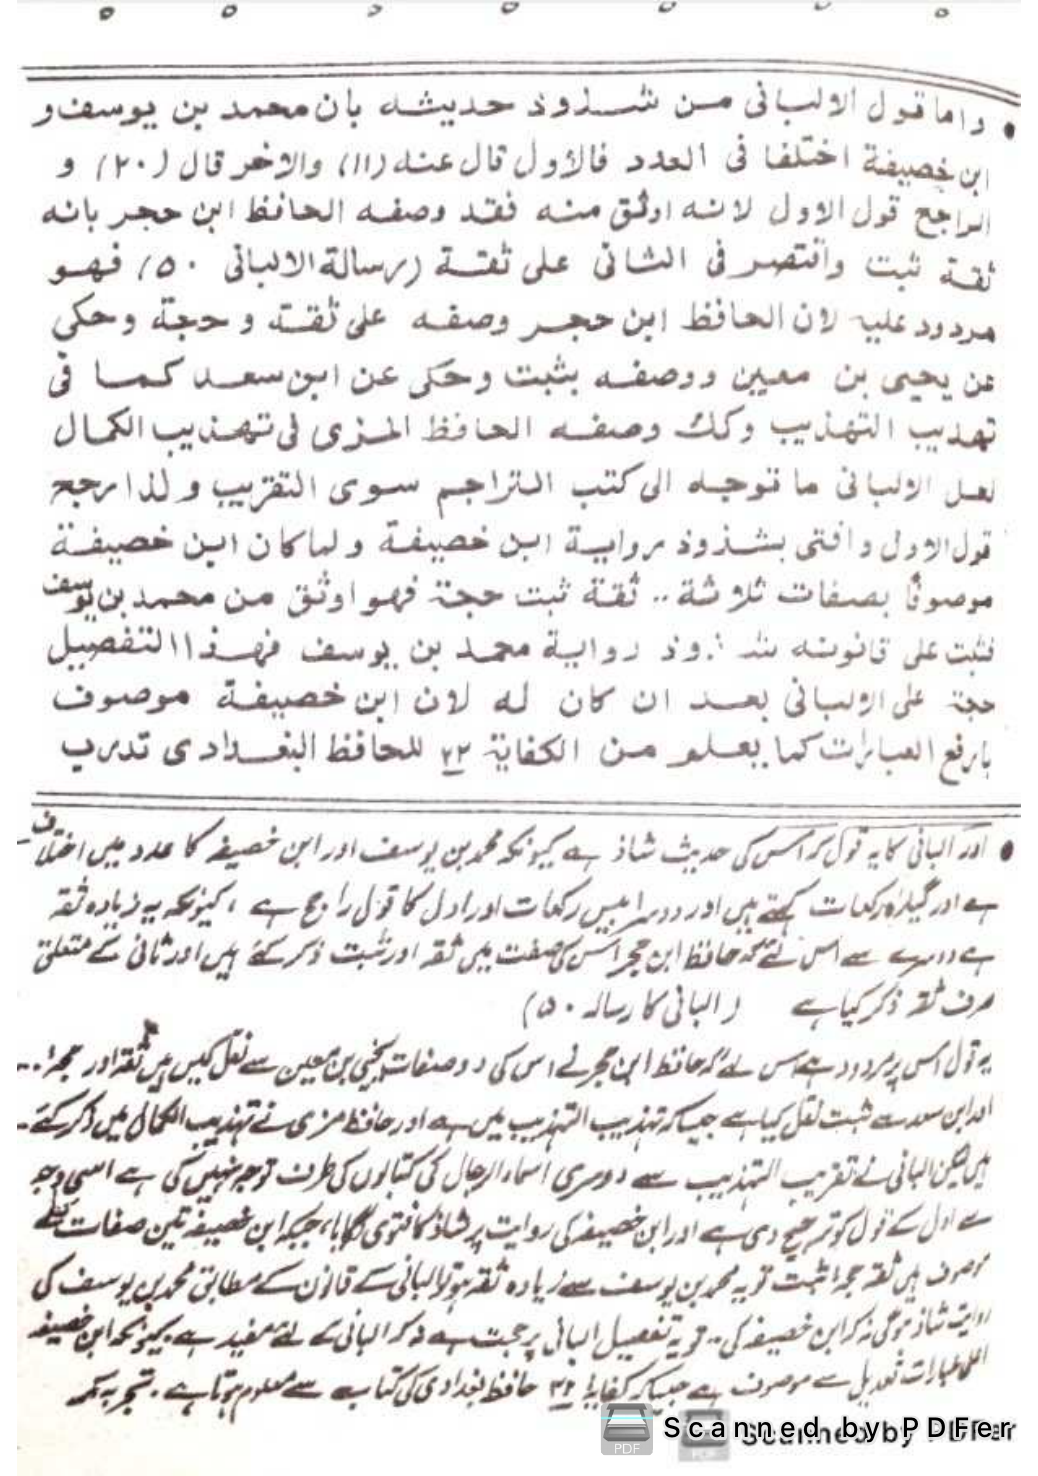 • واما قول الالبانی من شذوذ حدیثه بان محمد بن یوسف و
ابن خصیفة اختلفا فی العدد فالأول قال عنه (۱۱) والاخر قال (۲۰) و
الراجح قول الاول لانه اوثق منه فقد وصفه الحافظ ابن حجر بانه
ثقة ثبت وانتصر فی الثانی علی ثقة (رسالة الالبانی ۵۰) فهو
مردود علیه لان الحافظ ابن حجر وصفه علی ثقة و حجة وحکی
عن یحیی بن معین ووصفه بثبت وحکی عن ابن سعد کما فی
تهذیب التهذیب وکك وصفه الحافظ المزی فی تهذیب الکمال
لعل الالبانی ما توجه الی کتب التراجم سوی التقریب و لذا رجح
قول الاول وافتی بشذوذ روایة ابن خصیفة ولما کان ابن خصیفة
موصوفًا بصفات ثلاثة .. ثقة ثبت حجة فهو اوثق من محمد بن یوسف
فثبت علی قانونه شذوذ روایة محمد بن یوسف فهذا التفصیل
حجة علی الالبانی بعد ان کان له لان ابن خصیفة موصوف
بارفع العبارات کما یعلم من الکفایة ۲۲ للحافظ البغدادی تدرب
• اور البانی کا یہ قول کہ اس کی حدیث شاذ ہے کیونکہ محمد بن یوسف اور ابن خصیفہ کا عدد میں اختلاف
ہے اور گیارہ رکعات کہتے ہیں اور دوسرا بیس رکعات اور اول کا قول راجح ہے ، کیونکہ یہ زیادہ ثقہ
ہے دوسرے سے اس لئے کہ حافظ ابن حجر اس کی صفت میں ثقہ اور ثبت ذکر کئے ہیں اور ثانی کے متعلق
صرف ثقہ ذکر کیا ہے (البانی کا رسالہ ۵۰)
یہ قول اس پر مردود ہے اس لئے کہ حافظ ابن حجر نے اس کی دو صفات یحیی بن معین سے نقل کیں ہیں ثقہ اور حجہ ..
اور ابن سعد سے ثبت نقل کیا ہے جیسا کہ تہذیب التہذیب میں ہے اور حافظ مزی نے تہذیب الکمال میں ذکر کئے
ہیں لیکن البانی نے تقریب التہذیب سے دوسری اسماء الرجال کی کتابوں کی طرف توجہ نہیں کی ہے اسی وجہ
سے اول کے قول کو ترجیح دی ہے اور ابن خصیفہ کی روایت پر شاذ کا فتوی لگایا، جبکہ ابن خصیفہ تین صفات سے
موصوف ہیں ثقہ حجہ ثبت تو یہ محمد بن یوسف سے زیادہ ثقہ ہوئے البانی کے قانون کے مطابق محمد بن یوسف کی
روایت شاذ ہوگی نہ کہ ابن خصیفہ کی .. تو یہ تفصیل البانی پر حجت ہے نہ کہ البانی کے لئے مفید ہے . کیونکہ ابن خصیفہ
اعلی عبارات تعدیل سے موصوف ہے جیسا کہ کفایہ ۲۲ حافظ بغدادی کی کتاب سے معلوم ہوتا ہے .
Scanned by PDFer
Scanned by PDFer